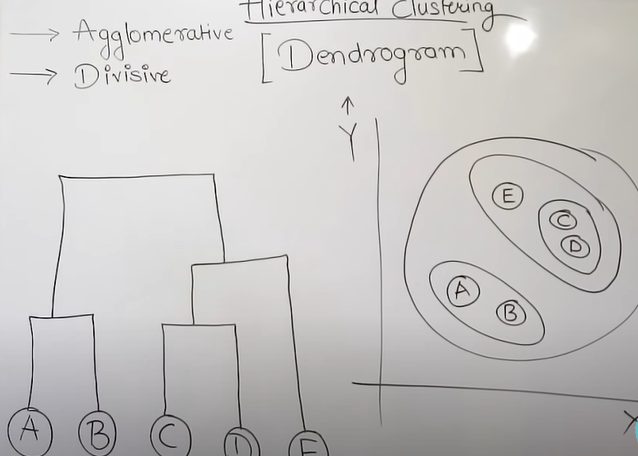 Hierarchical Clustering
→ Agglomerative
→ Divisive
[Dendrogram]
↑
Y
E
C
D
A
B
A
B
C
D
E
X